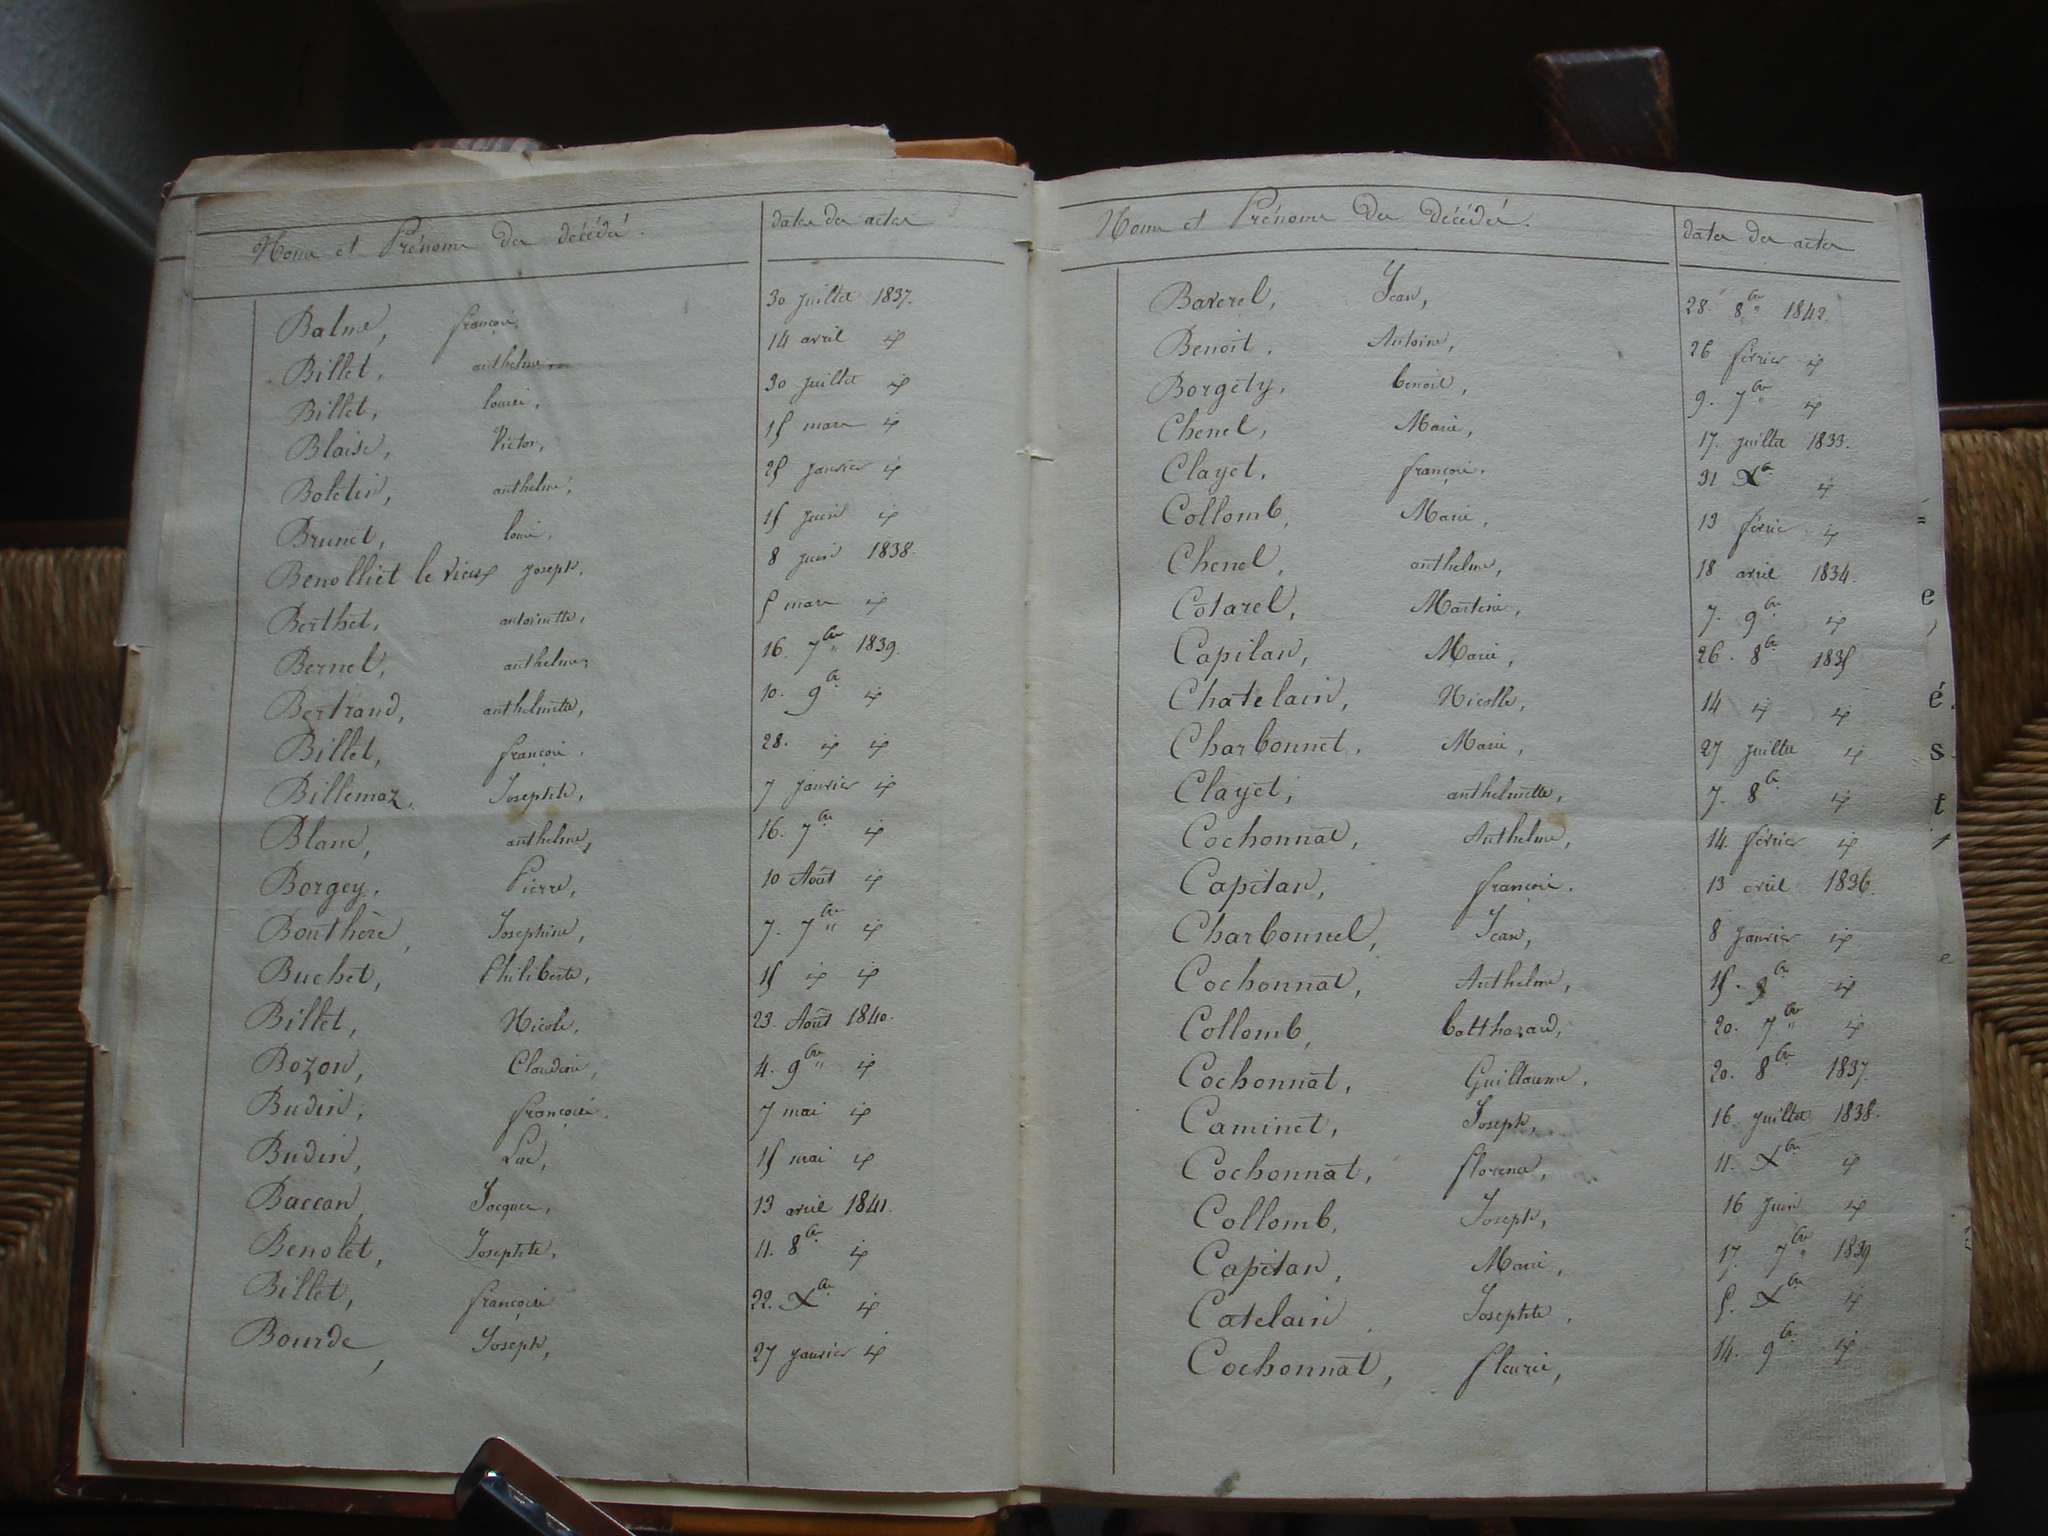 Noms et Prénoms des décédés. dates des actes
Balme, françois, 30 juillet 1837.
Billet, anthelme, 14 avril id
Billet, louise, 30 juillet id
Blaise, Victor, 15 mars id
Boletin, anthelme, 25 janvier id
Brunet, louis, 15 juin id
Benolliet le vieux joseph, 8 juin 1838.
Berthet, antoinette, 5 mars id
Bernel, anthelme, 16. 7bre 1839.
Bertrand, anthelmette, 10. 9b id
Billet, françois. 28. id id
Billemaz, Josephte, 7 janvier id
Blanc, anthelme, 16. 7bre id
Borgey, Pierre, 10 Août id
Bonthère, Josephine, 7. 7bre id
Buchet, Philiberte, 15 id id
Billet, Nicole, 23. Août 1840.
Bozon, Claudine, 4. 9bre id
Budin, françoise. 7 mai id
Budin, Luc, 15 mai id
Baccon, Jacques, 13 avril 1841.
Benolet, Josephte, 11. 8bre id
Billet, françoise 22. Xbre id
Bourde, Joseph, 27 janvier id
Noms et Prénoms des décédés. dates des actes
Baverel, Jean, 28. 8bre 1842.
Benoit, Antoine, 26 février id
Borgety, benoit, 9. 7bre id
Chenel, Marie, 17. juillet 1833.
Clayet, françois. 31 Xb id
Collomb, Marie, 13 février id
Chenel, anthelme, 18 avril 1834.
Cotarel, Martine, 7. 9bre id
Capitan, Marie, 26. 8bre 1835
Chatelain, Nicolle, 14 id id
Charbonnet, Marie, 27 juillet id
Clayet, anthelmette, 7. 8b id
Cochonnat, Anthelme, 14 février id
Capitan, françois. 13 avril 1836.
Charbonnel, Jean, 8 janvier id
Cochonnat, Anthelme, 15. 9b id
Collomb, balthazard, 20. 7bre id
Cochonnat, Guillaume, 20. 8bre 1837.
Caminet, Joseph, 16 juillet 1838.
Cochonnat, florence, 11. Xbre id
Collomb, Joseph, 16 juin id
Capitan, Marie, 17. 7bre 1839
Catelain, Josephte, 5. Xbre id
Cochonnat, fleurie, 14. 9b id